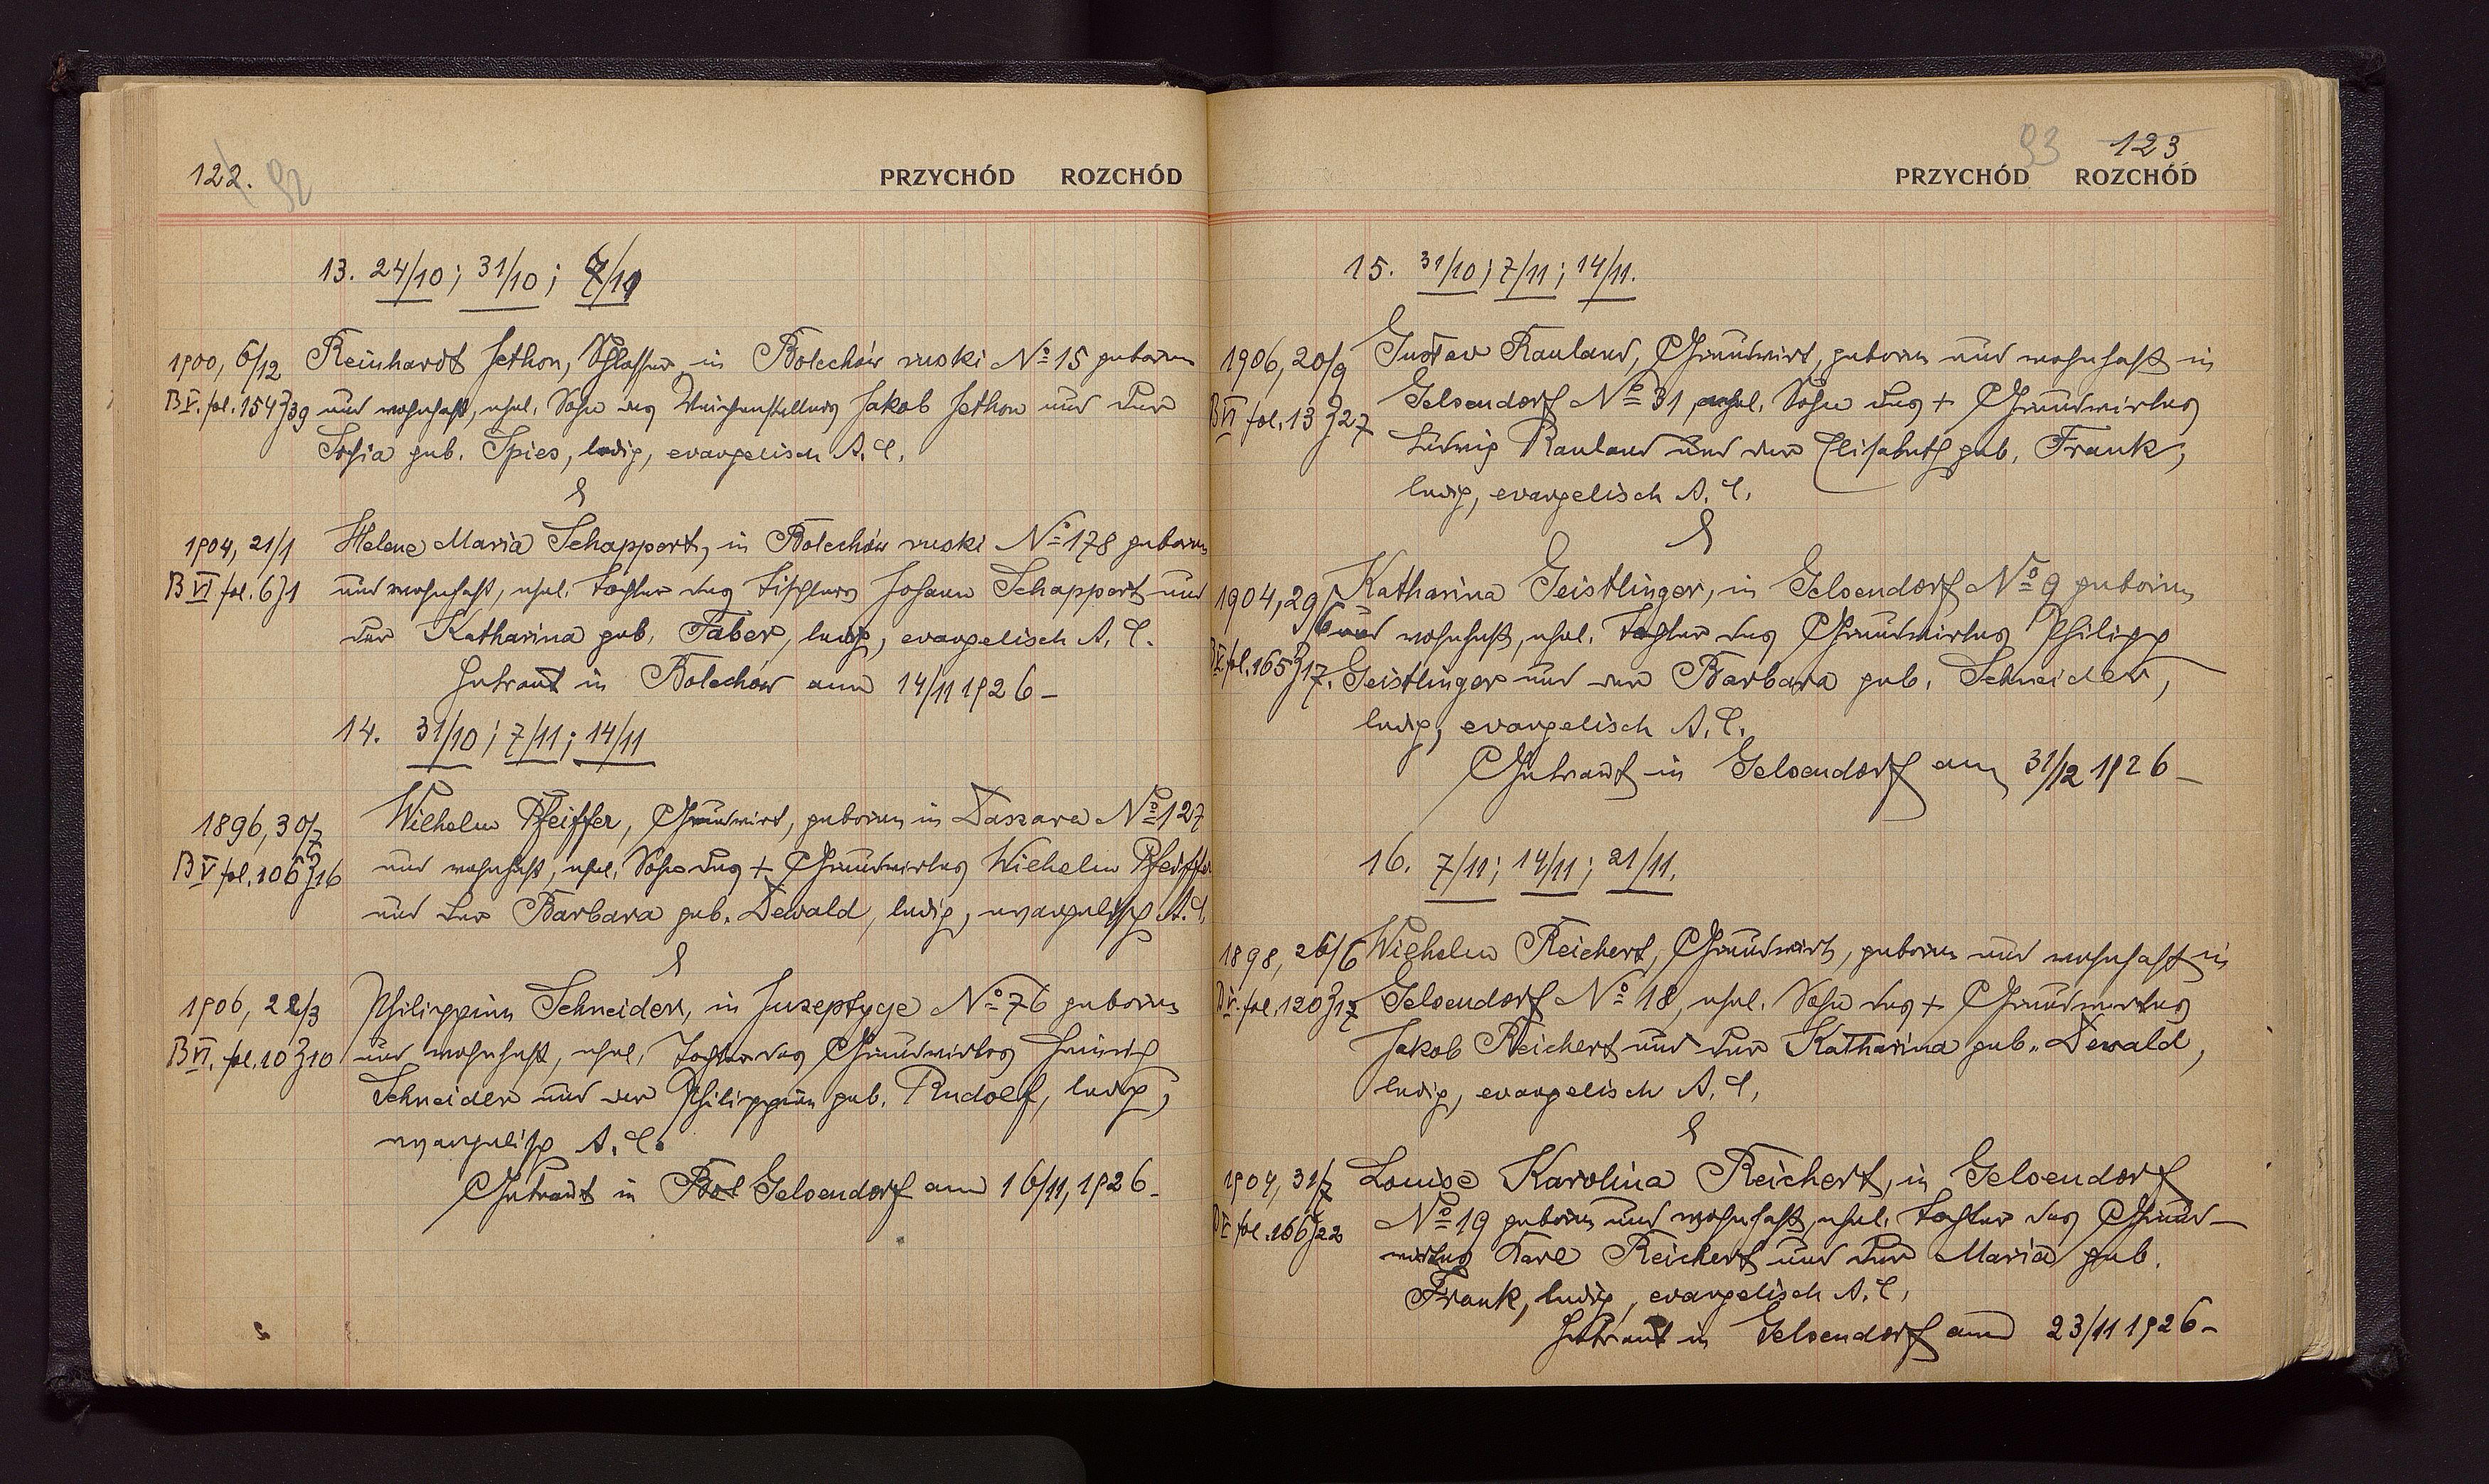 122. 92
PRZYCHÓD ROZCHÓD
13. 24/10; 31/10; 7/11
1900, 6/12 Reinhardt Jethon, Schlosser, in Bolechów ruski No 15 geboren
B V. fol. 154 Z 39 und wohnhaft, ehel. Sohn des Weichenstellers Jakob Jethon und der
Sofia geb. Spies, ledig, evangelisch A. C.
&
1904, 21/1 Helene Maria Schappert, in Bolechów ruski No 178 geboren
B VI fol. 6 Z 1 und wohnhaft, ehel. Tochter des Tischlers Johann Schappert und
der Katharina geb. Faber, ledig, evangelisch A. C.
Getraut in Bolechów am 14/11 1926 –
14. 31/10; 7/11; 14/11
1896, 30/7 Wilhelm Pfeiffer, Grundwirt, geboren in Daszawa No 127
B V fol. 106 Z 16 und wohnhaft, ehel. Sohn des + Grundwirtes Wilhelm Pfeiffer
und der Barbara geb. Dewald, ledig, evangelisch A. C.
&
1906, 22/3 Philippine Schneider, in Juzeptycze No 76 geboren
B VI. fol. 10 Z 10 und wohnhaft, ehel. Tochter des Grundwirtes Heinrich
Schneider und der Philippine geb. Rudolf, ledig,
evangelisch A. C.
Getraut in Bol Gelsendorf am 16/11, 1926 –
93 123
PRZYCHÓD ROZCHÓD
15. 31/10; 7/11; 14/11.
1906, 20/9 Gustav Rauland, Grundwirt, geboren und wohnhaft in
B VI fol. 13 Z 27 Gelsendorf No 31, ehel. Sohn des + Grundwirtes
Ludwig Rauland und der Elisabeth geb. Frank,
ledig, evangelisch A. C.
&
1904, 29/6 Katharina Geistlinger, in Gelsendorf No 9 geboren
und wohnhaft, ehel. Tochter des Grundwirtes Philipp
B V. fol. 165 Z 17. Geistlinger und der Barbara geb. Schneider,
ledig, evangelisch A. C.
Getraut in Gelsendorf am 31/12 1926 –
16. 7/11; 14/11; 21/11.
1898, 26/6 Wilhelm Reichert, Grundwirt, geboren und wohnhaft in
B V. fol. 120 Z 17 Gelsendorf No 18, ehel. Sohn des + Grundwirtes
Jakob Reichert und der Katharina geb. Dewald,
ledig, evangelisch A. C.
&
1904, 31/7 Louise Karolina Reichert, in Gelsendorf
B V fol. 166 Z 22 No 19 geboren und wohnhaft, ehel. Tochter des Grund-
wirtes Karl Reichert und der Maria geb.
Frank, ledig, evangelisch A. C.
Getraut in Gelsendorf am 23/11 1926 –